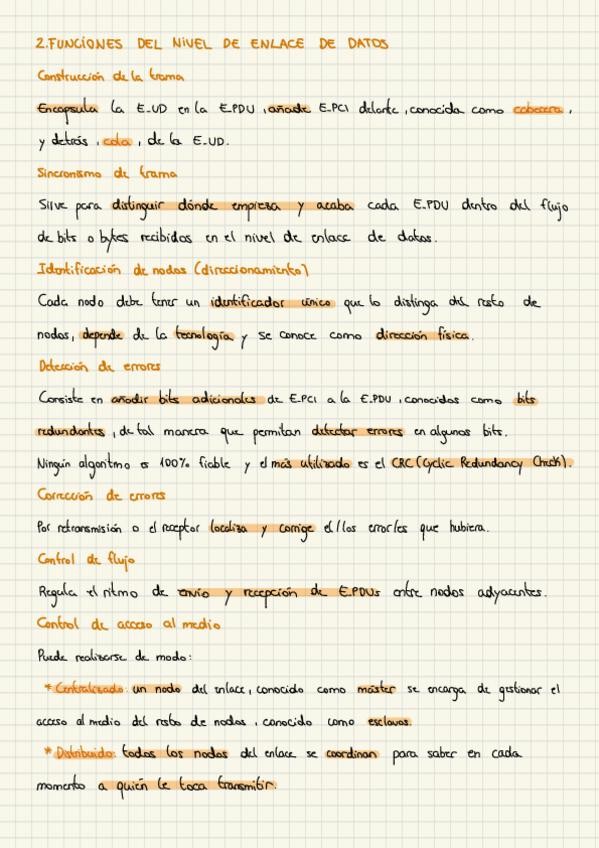 2.FUNCIONES DEL NIVEL DE ENLACE DE DATOS
Construcción de la trama
Encapsula la E_UD en la E_PDU, añade E_PCI delante, conocida como cabecera,
y detrás, cola, de la E_UD.
Sincronismo de trama
Sirve para distinguir dónde empieza y acaba cada E_PDU dentro del flujo
de bits o bytes recibidos en el nivel de enlace de datos.
Identificación de nodos (direccionamiento)
Cada nodo debe tener un identificador único que lo distinga del resto de
nodos, depende de la tecnología y se conoce como dirección física.
Detección de errores
Consiste en añadir bits adicionales de E_PCI a la E_PDU, conocidos como bits
redundantes, de tal manera que permitan detectar errores en algunos bits.
Ningún algoritmo es 100% fiable y el más utilizado es el CRC (Cyclic Redundancy Check).
Corrección de errores
Por retransmisión o el receptor localiza y corrige el/los error/es que hubiera.
Control de flujo
Regula el ritmo de envío y recepción de E_PDUs entre nodos adyacentes.
Control de acceso al medio
Puede realizarse de modo:
* Centralizado: un nodo del enlace, conocido como máster se encarga de gestionar el
acceso al medio del resto de nodos, conocido como esclavos.
* Distribuido: todos los nodos del enlace se coordinan para saber en cada
momento a quién le toca transmitir.